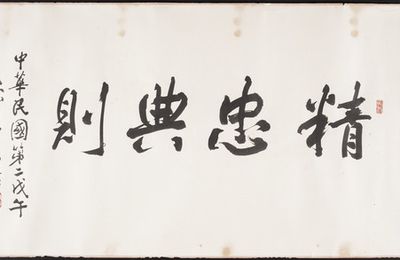 精忠典則
中華民國第二戊午